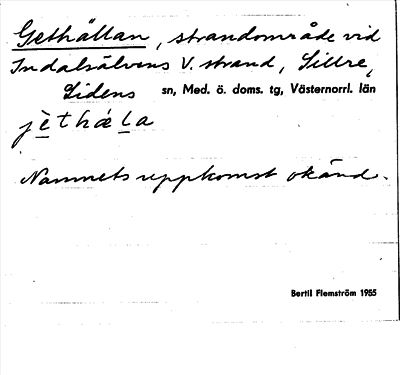 Gethällan, strandområde vid
Indalsälvens V. strand, Sillre,
Lidens sn, Med. ö. doms. tg, Västernorrl. län
jèthæ̀la
Namnets uppkomst okänd.
Bertil Flemström 1955